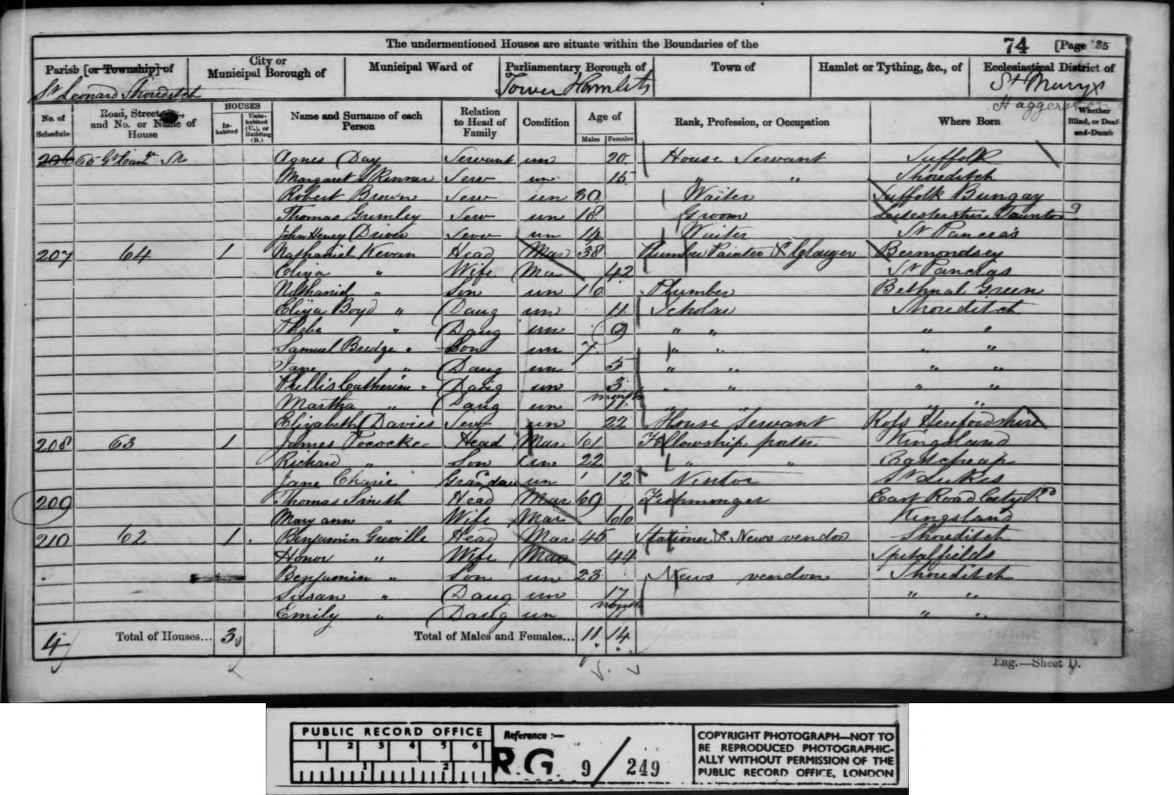 The undermentioned Houses are situate within the Boundaries of the 74 [Page 35
Parish [or Township] of City or Municipal Borough of Municipal Ward of Parliamentary Borough of Town of Hamlet or Tything, &c., of Ecclesiastical District of
St Leonard Shoreditch Tower Hamlets St Marys Haggerston
No. of Schedule Road, Street, and No. or Name of House HOUSES Inhabited Uninhabited (U.), or Building (B.) Name and Surname of each Person Relation to Head of Family Condition Age of Males Females Rank, Profession, or Occupation Where Born Whether Blind, or Deaf-and-Dumb
206 65 St Agnes Day Servant un 20 House Servant Suffolk
Margaret Skinner Serv un 15 " " Shoreditch
Robert Brown Serv un 30 Waiter Suffolk Bungay
Thomas Grimley Serv un 18 Groom Leicestershire Taunton ?
John Henry Driver Serv un 14 Waiter St Pancras
207 64 1 Nathaniel Kevan Head Mar 38 Plumber Painter & Glazier Bermondsey
Eliza " Wife Mar 42 St Pancras
Nathaniel " Son un 16 Plumber Bethnal Green
Eliza Boyd " Daug un 11 Scholar Shoreditch
Phebe " Daug un 9 " " " "
Samuel Bredge " Son un 7 " " " "
Jane " Daug un 5 " " " "
Phillis Catherine " Daug un 3 " " " "
Martha " Daug un months 11 " "
Elizabeth Davies Serv un 22 House Servant Ross Herefordshire
208 63 1 James Pococke Head Mar 61 Fellowship porter Kingsland
Richard " Son un 22 " " Eastcheap
Jane Grandau un 12 St Lukes
209 Thomas Smith Head Mar 69 Ironmonger East Road City Rd
Mary ann " Wife Mar 66 Kingsland
210 62 1 Benjamin Greville Head Mar 45 Stationer & News vendor Shoreditch
Honor " Wife Mar 44 Spitalfields
Benjamin " Son un 23 News vendor Shoreditch
Susan " Daug un 17 " "
Emily " Daug un months 11 " "
4 Total of Houses... 3 Total of Males and Females... 11 14
Eng.—Sheet D.
PUBLIC RECORD OFFICE
1 2 3 4 5 6
1 2
Reference :—
R.G. 9 / 249
COPYRIGHT PHOTOGRAPH—NOT TO
BE REPRODUCED PHOTOGRAPHIC-
ALLY WITHOUT PERMISSION OF THE
PUBLIC RECORD OFFICE, LONDON